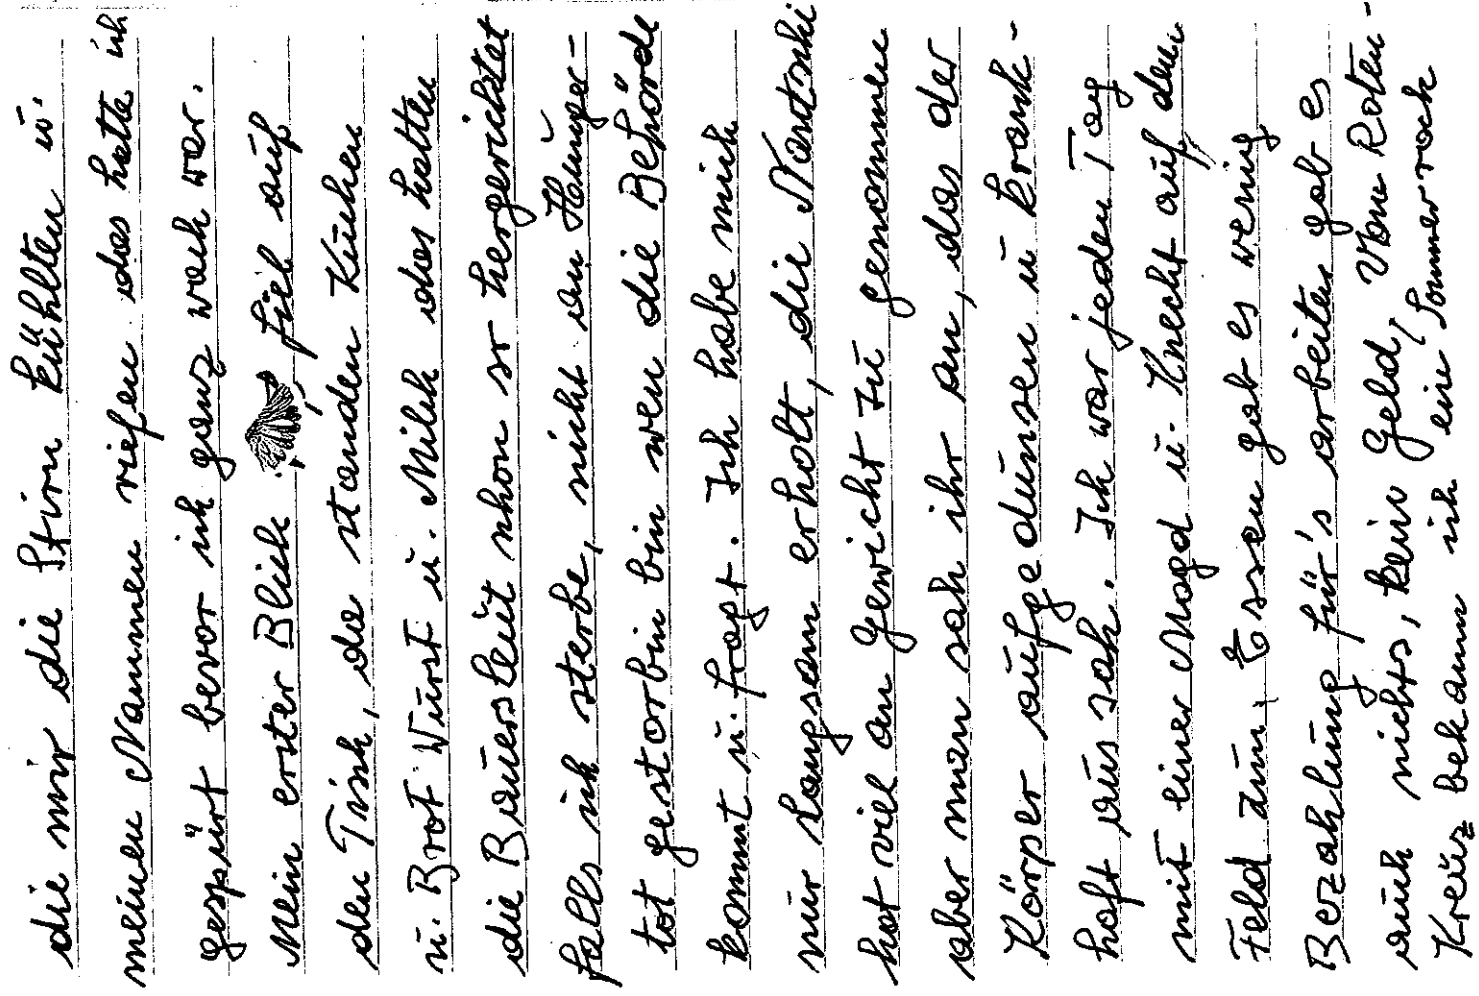 die mir die Stirn kühlten u.
meinen Nammen riefen das hatte ich
gespürt bevor ich ganz wach war.
Mein erster Blick, fiel auf
den Tisch, da standen Kuchen
u. Brot Wurst u. Milch das hatten
die Bauersleut schon so hergerichtet
falls ich sterbe, nicht an Hunger-
tot gestorbin bin wen die Behörde
kommt u. fragt. Ich habe mich
nur langsam erholt, die Nantschi
hat viel an Gewicht zu genommen
aber man sah ihr an, das der
Körper aufgedunsen u krank-
haft aus sah. Ich war jeden Tag
mit einer Magd u. Knecht auf dem
Feld zum. Essen gab es wenig
Berzahlung für's arbeiten gab es
auch nichts, kein Geld, Vom Roten-
Kreuz bekamm ich eine Sommerrock